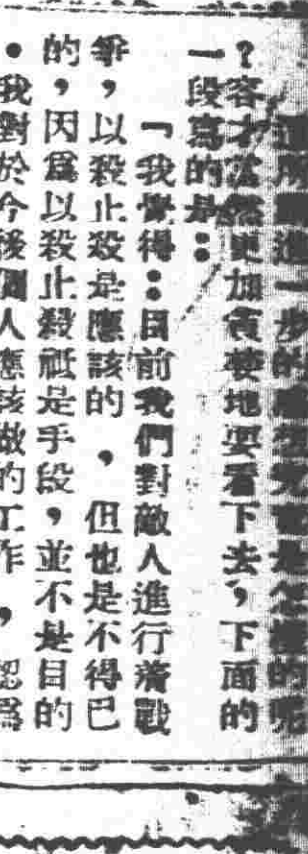 進一步的是怎樣的呢
？客才當然更加貪婪地要看下去，下面的
一段寫的是：
「我覺得：目前我們對敵人進行着戰
爭，以殺止殺是應該的，但也是不得已
的，因爲以殺止殺祗是手段，並不是目的
。我對於今後個人應該做的工作，認爲